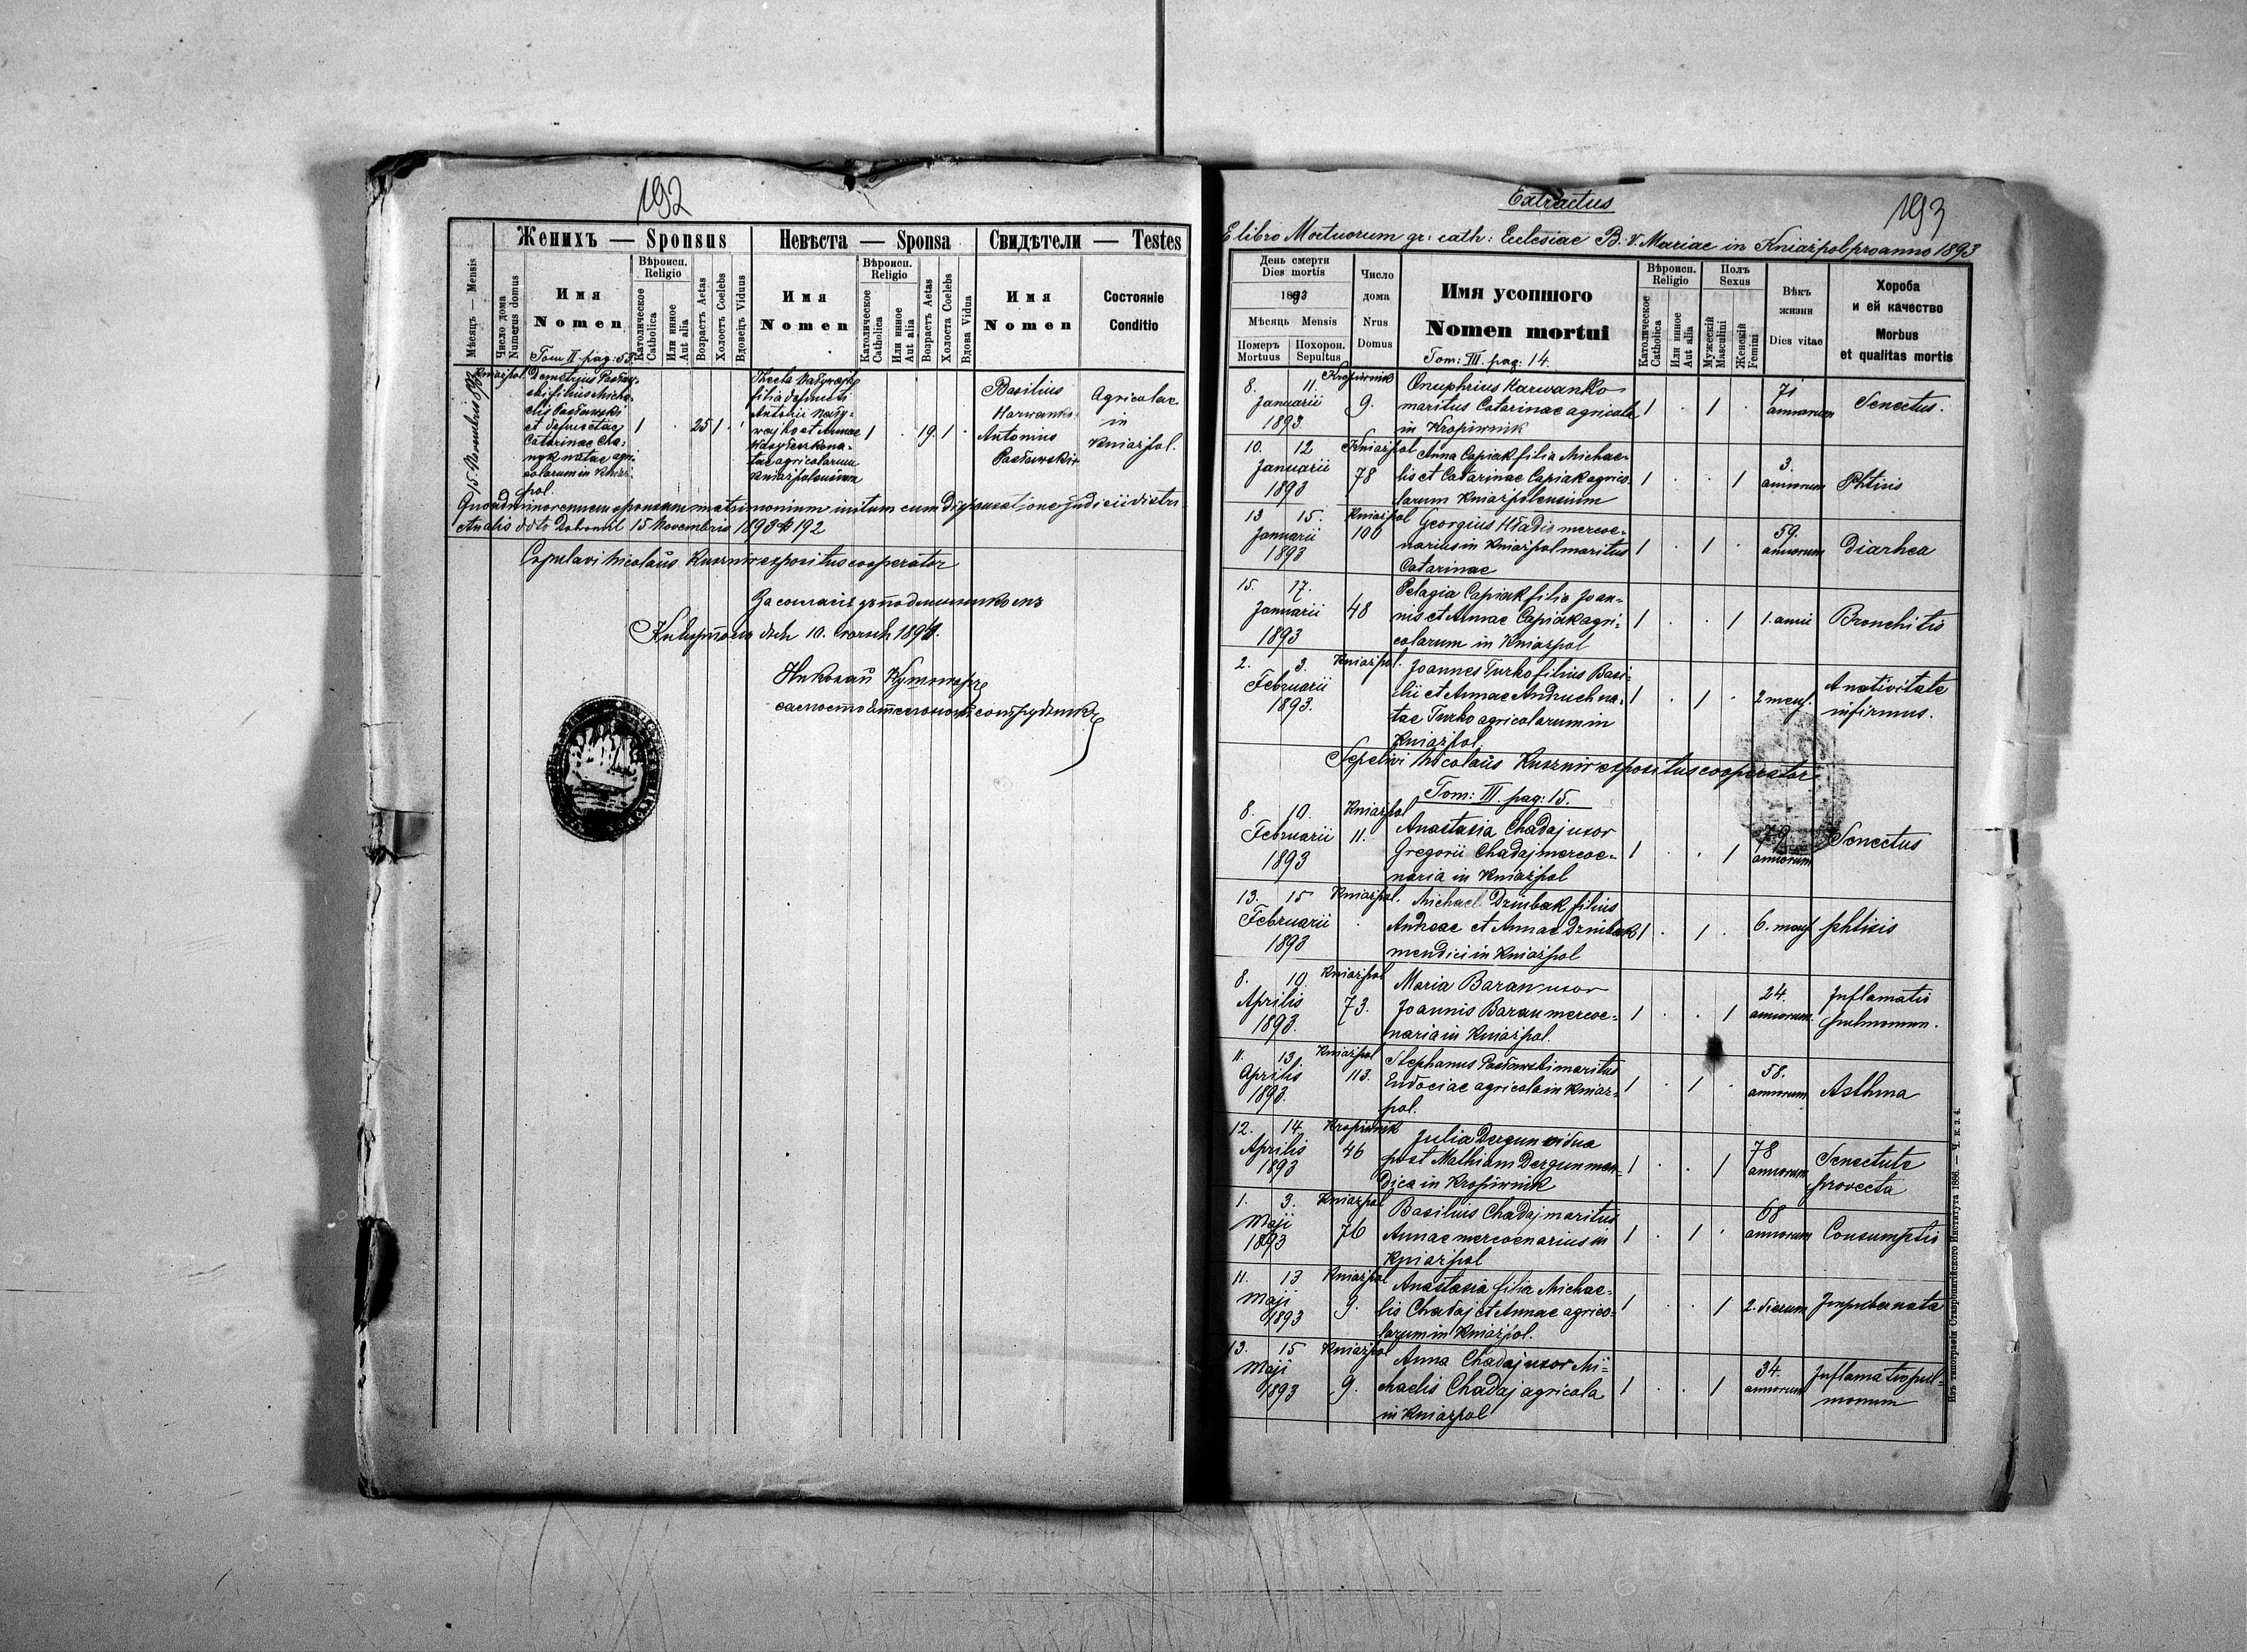 192
Женихъ — Sponsus
Невѣста — Sponsa
Свидѣтели — Testes
Мѣсяць — Mensis
Число дома
Numerus domus
Имя
Nomen
Вѣроисп.
Religio
Католическое
Catholica
Или инное
Aut alia
Возрастъ Aetas
Холостъ Coelebs
Вдовецъ Viduus
Имя
Nomen
Вѣроисп.
Religio
Католическое
Catholica
Или инное
Aut alia
Возрастъ Aetas
Холоста Coelebs
Вдова Vidua
Имя
Nomen
Состояніе
Conditio
Tom II pag: 53
15 Novembris 1893
Kniażpol.
Demetrius Pasław-
ski filius Micha-
elis Pasławski
et defunctae
Catarinae Cha-
nyk natae agri-
colarum in Kniaź-
pol.
1 . 25 1 .
filia defuncti
Antonii
et Annae
natae agricolarum
Kniaźpolensium
1 . 19. 1 .
Basilius
Harwanko
Antonius
Pasławski
Agricolae
in
Kniaźpol.
Quoad minorennem sponsam matrimonium initum cum dispensatione judicii distri-
ctualis ddto Dobromil 15 Novembris 1893 192
Copulavi Nicolaüs Kusznir expositus cooperator
За согласіе зъ подлинникомъ
дня 10. 1894.
Николай Кушниръ
самостоятельный сотрудникъ
193
Extractus
E libro Mortuorum gr: cath: Ecclesiae B. V. Mariae in Kniaźpol pro anno 1893
День смерти
Dies mortis
1893
Мѣсяць Mensis
Померъ
Mortuus
Похорон.
Sepultus
Число
дома
Nrus
Domus
Имя усопшого
Nomen mortui
Tom: III. pag: 14.
Вѣроисп.
Religio
Католическое
Catholica
Или инное
Aut alia
Полъ
Sexus
Мужескій
Masculini
Женскій
Femini
Вѣкъ
жизни
Dies vitae
Хороба
и ей качество
Morbus
et qualitas mortis
8. 11. Januarii 1893
Kropiwnik 9.
Onuphrius Harwanko
maritus Catarinae agricola
in Kropiwnik
1 . 1 .
71 annorum
Senectus.
10. 12 Januarii 1893
Kniaźpol 78
Anna Capiak filia Michae-
lis et Catarinae Capiak agrico-
larum Kniaźpolensium
1 . . 1
3. annorum
Phtisis
13 15. Januarii 1893
Kniaźpol 106
Georgius Hładio mercoe-
narius in Kniaźpol maritus
Catarinae
1 . 1 .
59. annorum
Diarhea
15. 17. Januarii 1893
48
Pelagia Capiak filia Joan-
nis et Annae Capiak agri-
colarum in Kniaźpol
1 . . 1
1. anni
Bronchitis
2. 3. Februarii 1893.
Kniaźpol.
Joannes Turko filius Basi-
lii et Annae Andruch na-
tae Turko agricolarum in
Kniaźpol.
1 . 1 .
2 mens.
A nativitate
infirmus.
Sepelivi Nicolaüs Kusznir expositus cooperator
Tom: III. pag: 15.
8. 10. Februarii 1893
Kniaźpol 11.
Anastasia Chadaj uxor
Gregorii Chadaj mercoe-
naria in Kniaźpol
1 . . 1
79 annorum
Senectus
13. 15 Februarii 1893
Kniaźpol.
Michael Dziubak filius
Andreae et Annae Dziubak
mendici in Kniaźpol
1 . 1 .
6. mens
phtisis
8. 10. Aprilis 1893.
Kniaźpol 73.
Maria Baran uxor
Joannis Baran mercoe-
naria in Kniaźpol.
1 . . 1
24. annorum.
Inflamatio
pulmonum.
11. 13. Aprilis 1893.
Kniaźpol 113.
Stephanus Pasławski maritus
Eudociae agricola in Kniaź-
pol.
1 . 1 .
58. annorum
Asthma
12. 14. Aprilis 1893
Kropiwnik 46
Julia Dergun vidua
post Mathiam Dergun men-
dica in Kropiwnik
1 . . 1
78 annorum
Senectute
provecta
1. 3. Maji 1893
Kniaźpol 76
Basilius Chadaj maritus
Annae mercoenarius in
Kniaźpol
1 . 1 .
68 annorum
Consumptio
11. 13 Maji 1893
Kniaźpol 9.
Anastasia filia Michae-
lis Chadaj et Annae agrico-
larum in Kniaźpol.
1 . . 1
2. dierum
13. 15 Maji 1893
Kniaźpol 9.
Anna Chadaj uxor Mi-
chaelis Chadaj agricola
in Kniaźpol
1 . . 1
34. annorum
Inflamatio pul-
monum
Изъ типографіи Ставропигійского Института 1886. — Ч. к. з. 4.